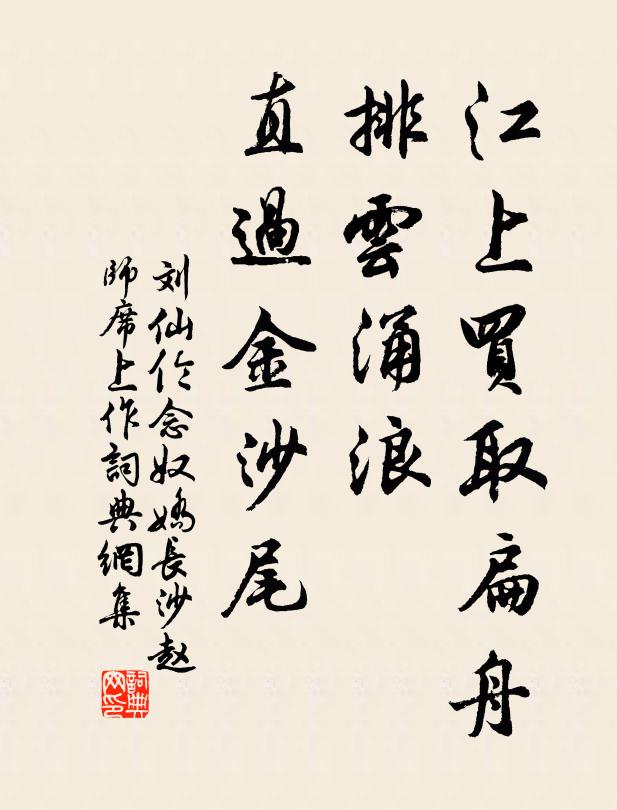 江上買取扁舟
排雲涌浪
直過金沙尾
刘仙伦念奴嬌長沙赵
師席上作詞典網集
詞典网印